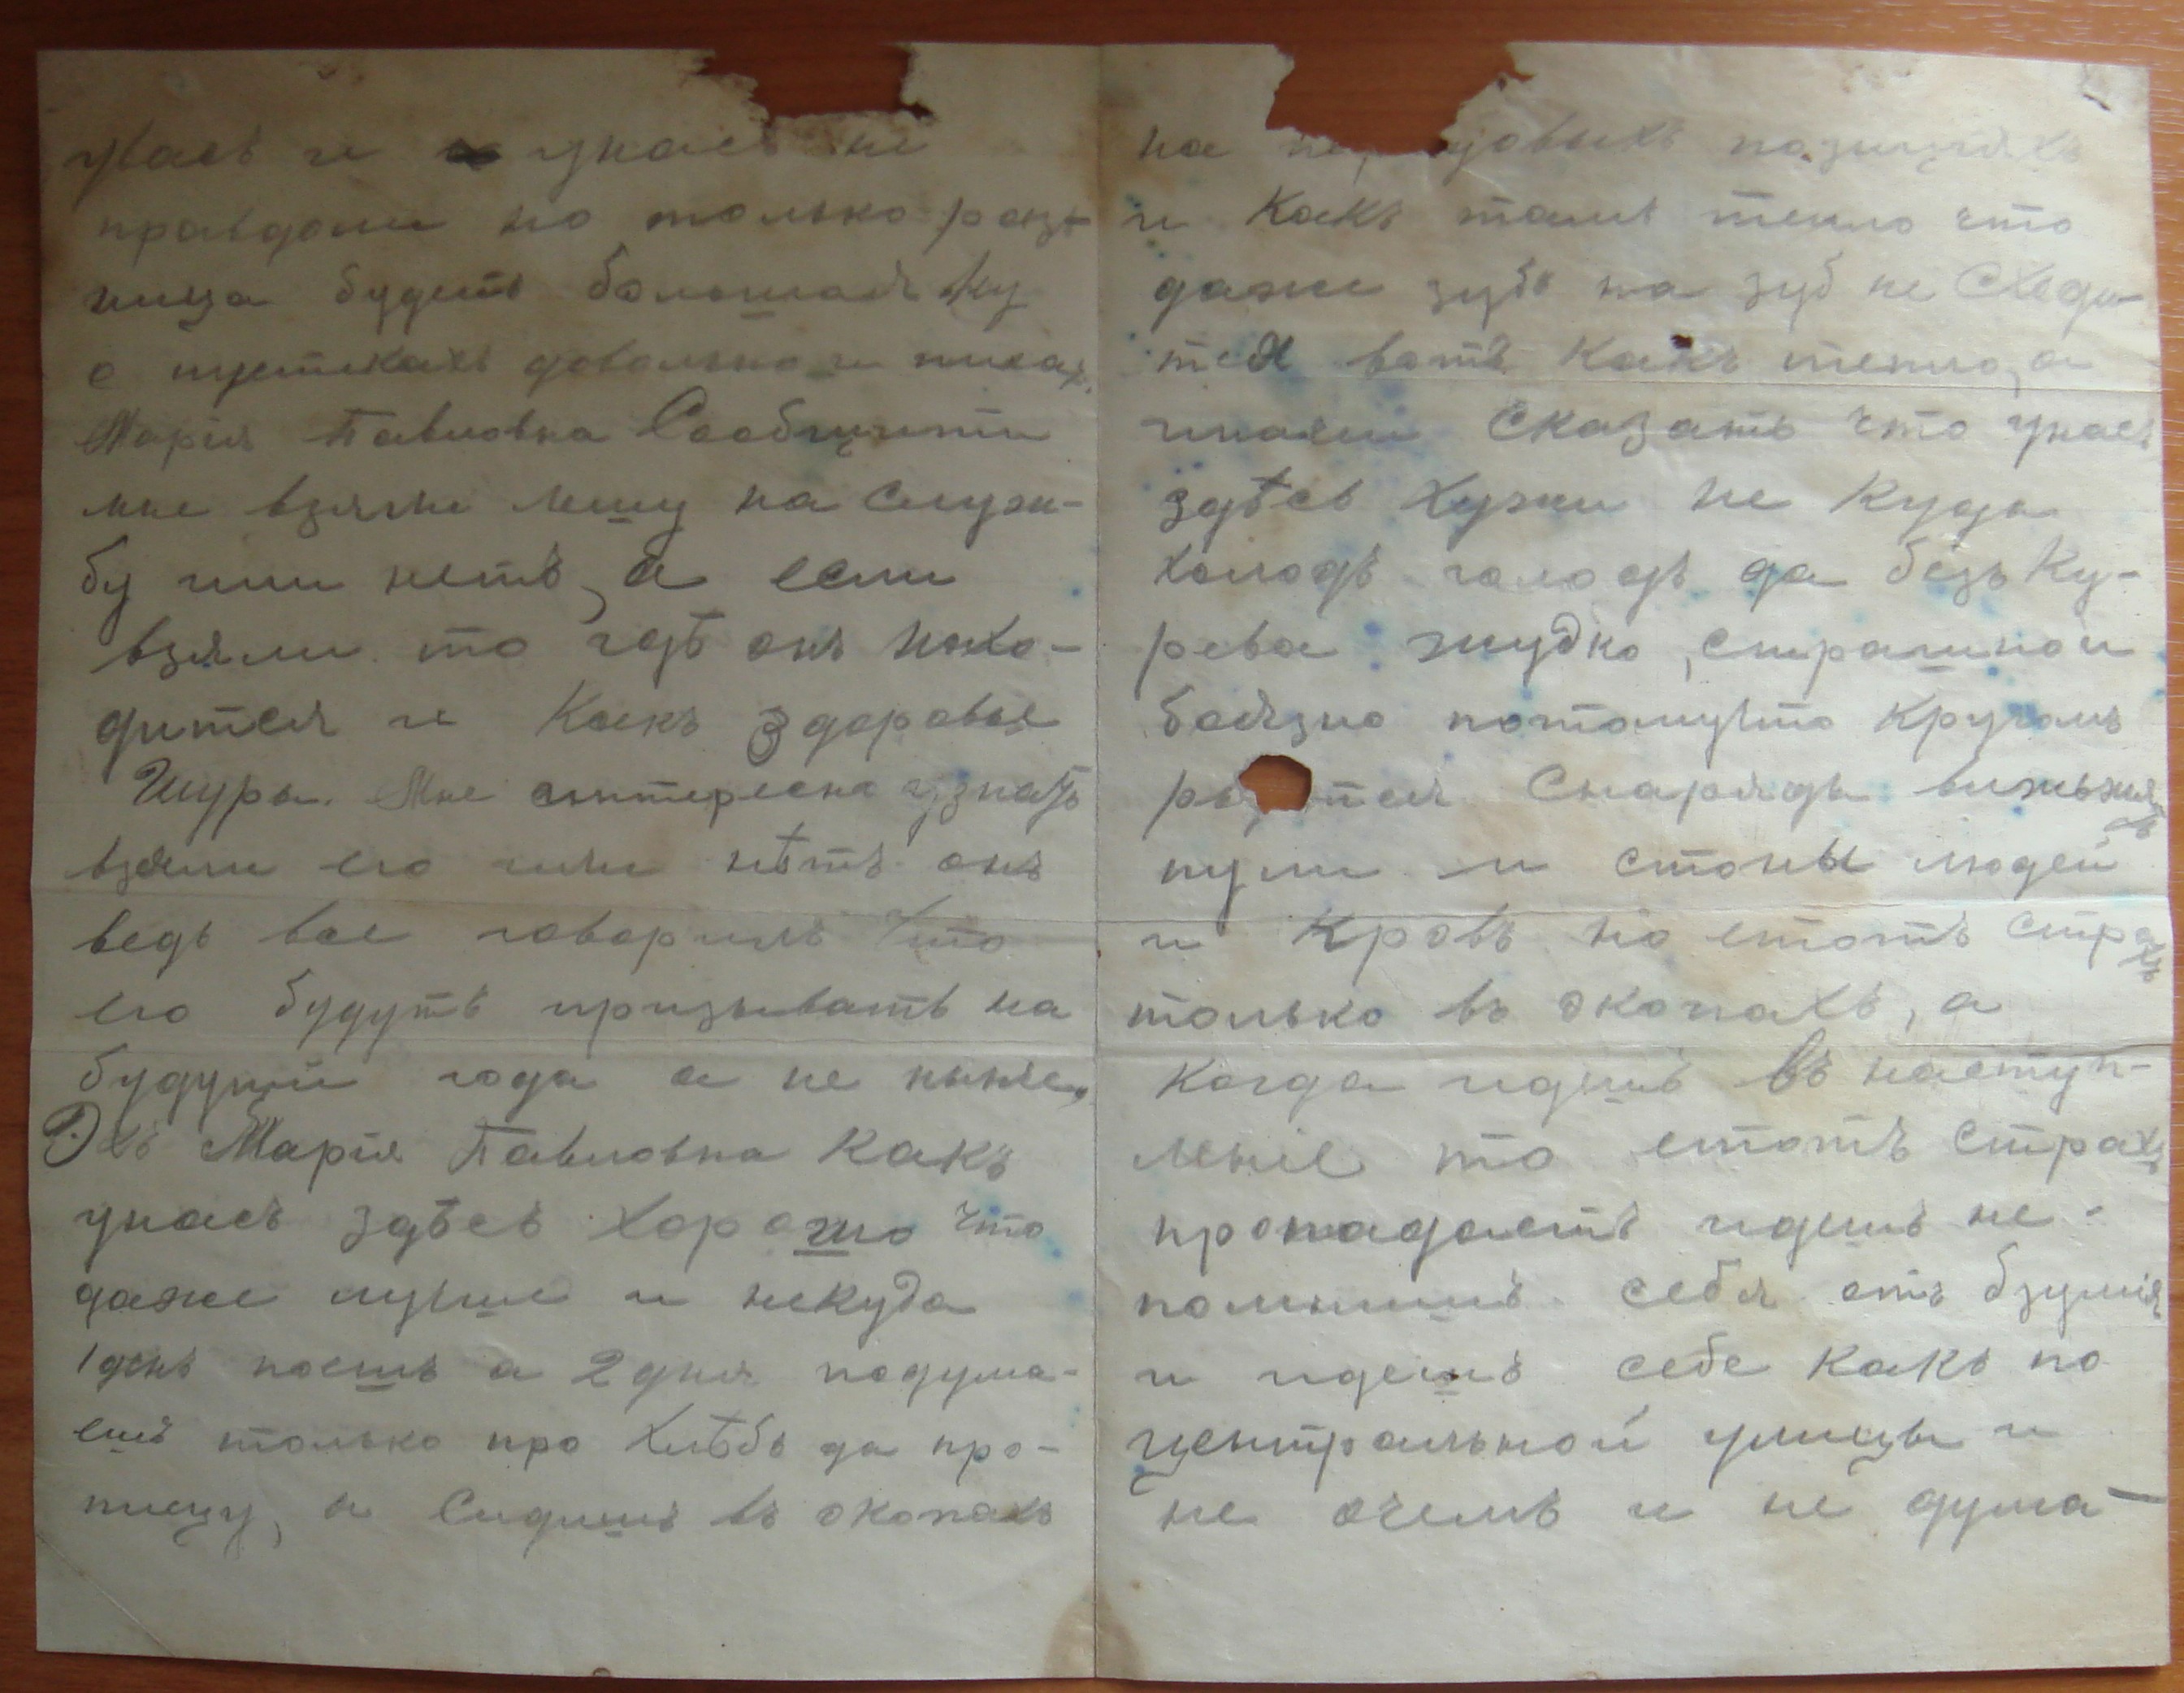 унасъ и унасъ не
правдали но только разъ
ница будетъ большая Ну
о пустякахъ довольно и писах.
Марія Павловна Сообщити
мне взяли Мишу на служ-
бу или нетъ, а если
взяли то гдѣ онъ нахо-
дится и Какъ здоровье
Шуры. Мне антересна узнать
взяли его или нѣтъ онъ
ведь все говорилъ что
его будутъ призывать на
будущи года а не ныне,
Эхъ Марія Павловна какъ
унасъ здѣсь хорошо что
даже лучше и некуда
1 день поешь а 2 дня подума-
ешъ только про хлѣбъ да про-
пищу, и Сидишъ въ окопахъ
на овыхъ позицияхъ
и Какъ тамъ тепло что
даже зубъ на зуб не сходи-
тся вотъ Какъ тепло, а
иначи сказать что унасъ
здѣсь Хужи не Куда
Холодъ голодъ да безъ Ку-
рева жудко, страшной
боязно потомучто Кругомъ
Снаряды вижьжятъ
пули и стоны людей
и Кровь но етотъ страхъ
только въ окопахъ, а
Когда идешъ въ наступ-
леніе то етотъ страхъ
пропадаетъ идешъ не-
помнишъ себя отъ бзумія
и идешъ себе Какъ по
центральной улицы и
не очемъ и не дума-